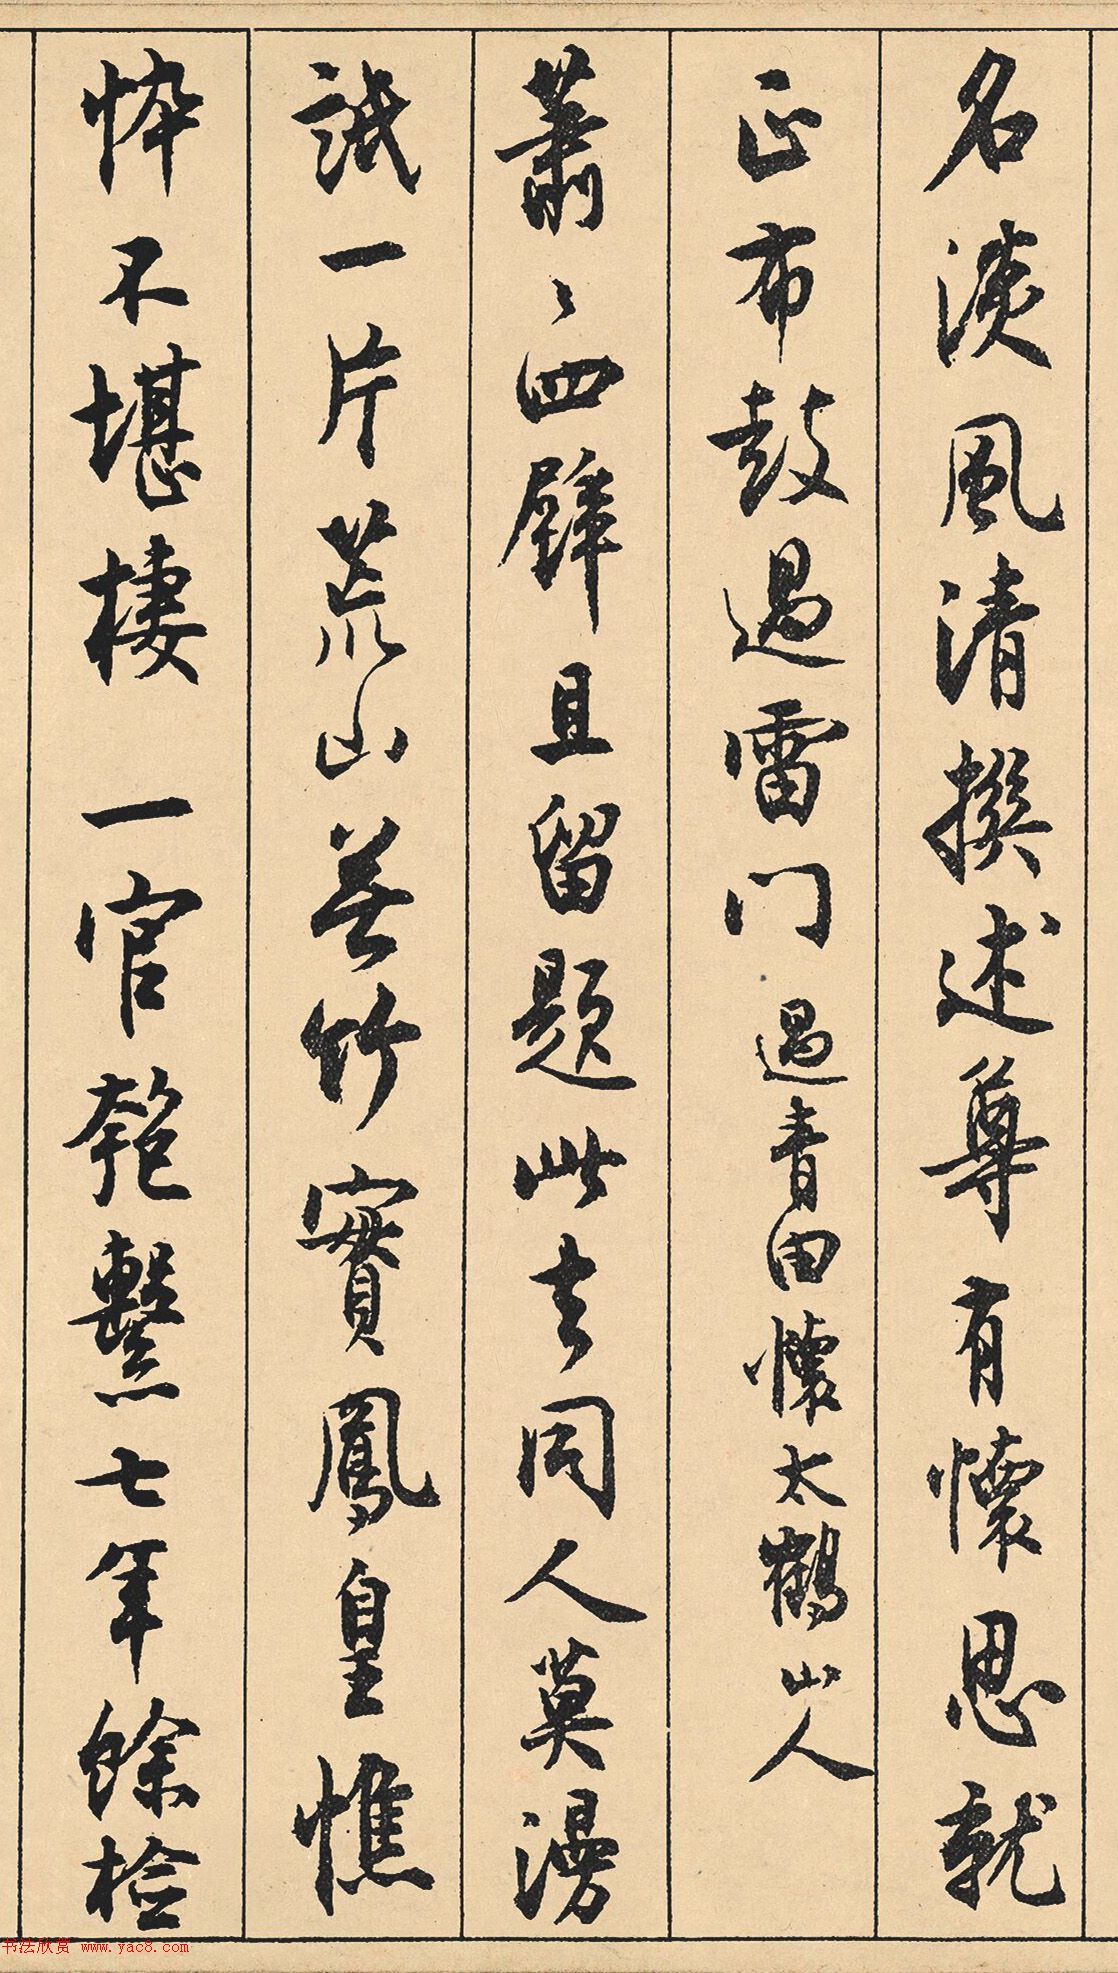 名淡風清撰述尊有懷思就
正布鼓過雷门過青田懷太鶴山人
蕭〻四壁且留題此去同人莫漫
詆一片荒山無竹實鳳皇憔
悴不堪棲一官匏繫七年餘檢
书法欣赏 www.yac8.com